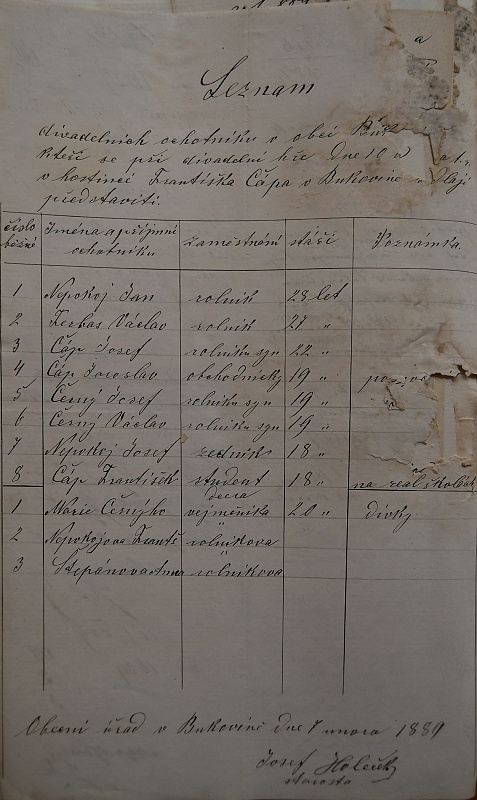 Seznam
divadelních ochotníku v obci
kteří se při divadelní hře dne 10
v hostinci Františka Čápa v Bukovině
představiti.
číslo běžné Jména a příjmní ochotníku zaměstnání stáří Poznámka
1 Nepokoj Jan rolník 28 let
2 Ferbas Václav rolník 27 "
3 Čáp Josef rolníku syn 22 "
4 Čáp Jaroslav obchodnický 19 "
5 Černý Josef rolníku syn 19 "
6 Černý Václav rolníku syn 19 "
7 Nepokoj Josef zedník 18 "
8 Čáp František student 18 " na real
1 Marie Černýho dcera vejměníka 20 " dívky
2 Nepokojova Frant rolníkova "
3 Štěpánova Anna rolníkova
Obecní úřad v Bukovině dne 7 unora 1889
Josef Holeček
starosta